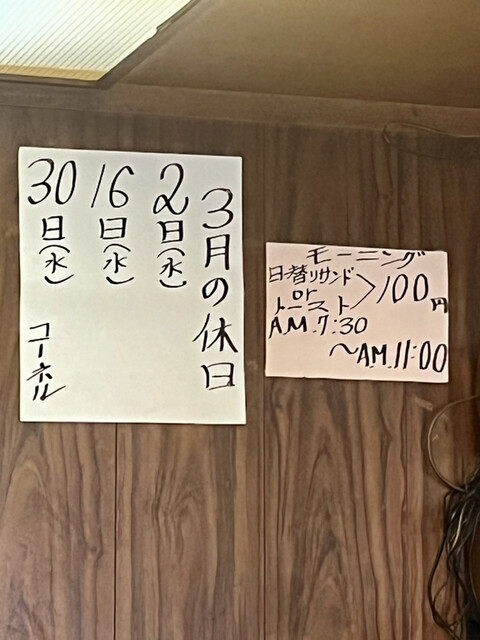 3月の休日
2日(水)
16日(水)
30日(水)
コーネル
モーニング
日替りサンド
or
トースト
>100円
AM.7:30
〜AM.11:00